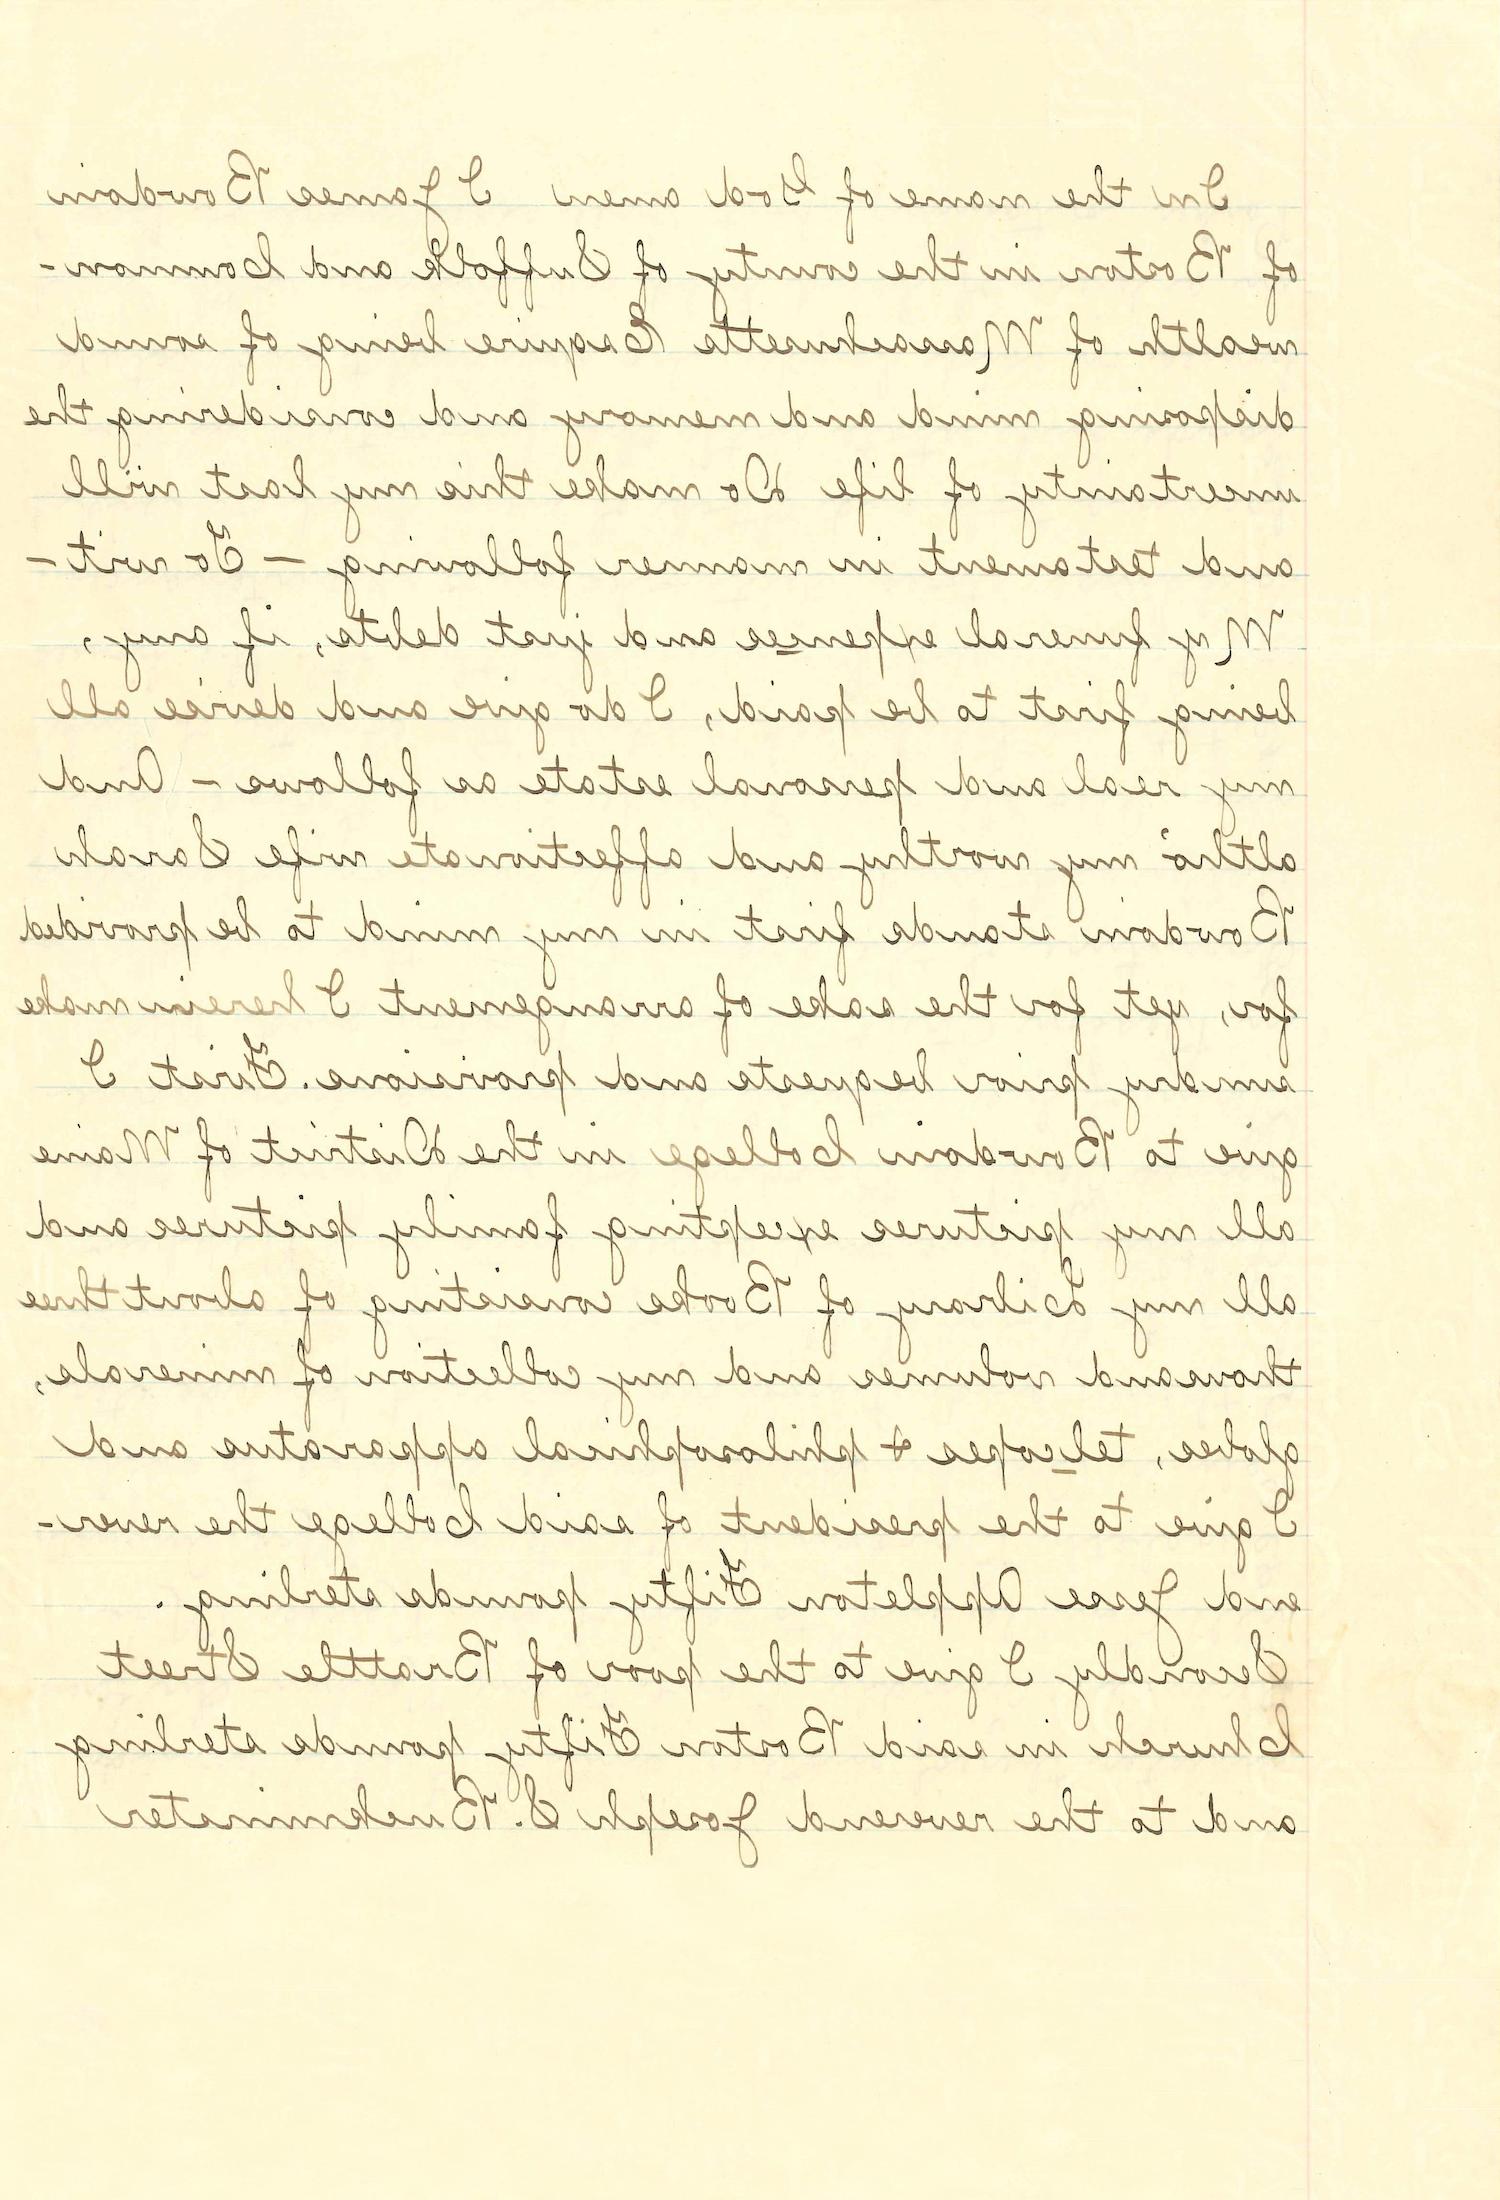 In the name of God amen I James Bowdoin
of Boston in the county of Suffolk and Common-
wealth of Massachusetts Esquire being of sound
disposing mind and memory and considering the
uncertainty of life Do make this my last will
and testament in manner following – To wit –
My funeral expences and just debts, if any,
being first to be paid, I do give and devise all
my real and personal estate as follows – And
altho' my worthy and affectionate wife Sarah
Bowdoin stands first in my mind to be provided
for, yet for the sake of arrangement I herein make
sundry prior bequests and provisions. First I
give to Bowdoin College in the District of Maine
all my pictures excepting family pictures and
all my Library of Books consisting of about three
thousand volumes and my collection of minerals,
globes, telcopes & philosophical apparatus and
I give to the president of said College the rever-
end Jesse Appleton Fifty pounds sterling.
Secondly I give to the poor of Brattle Street
Church in said Boston Fifty pounds sterling
and to the reverend Joseph S. Buckminster